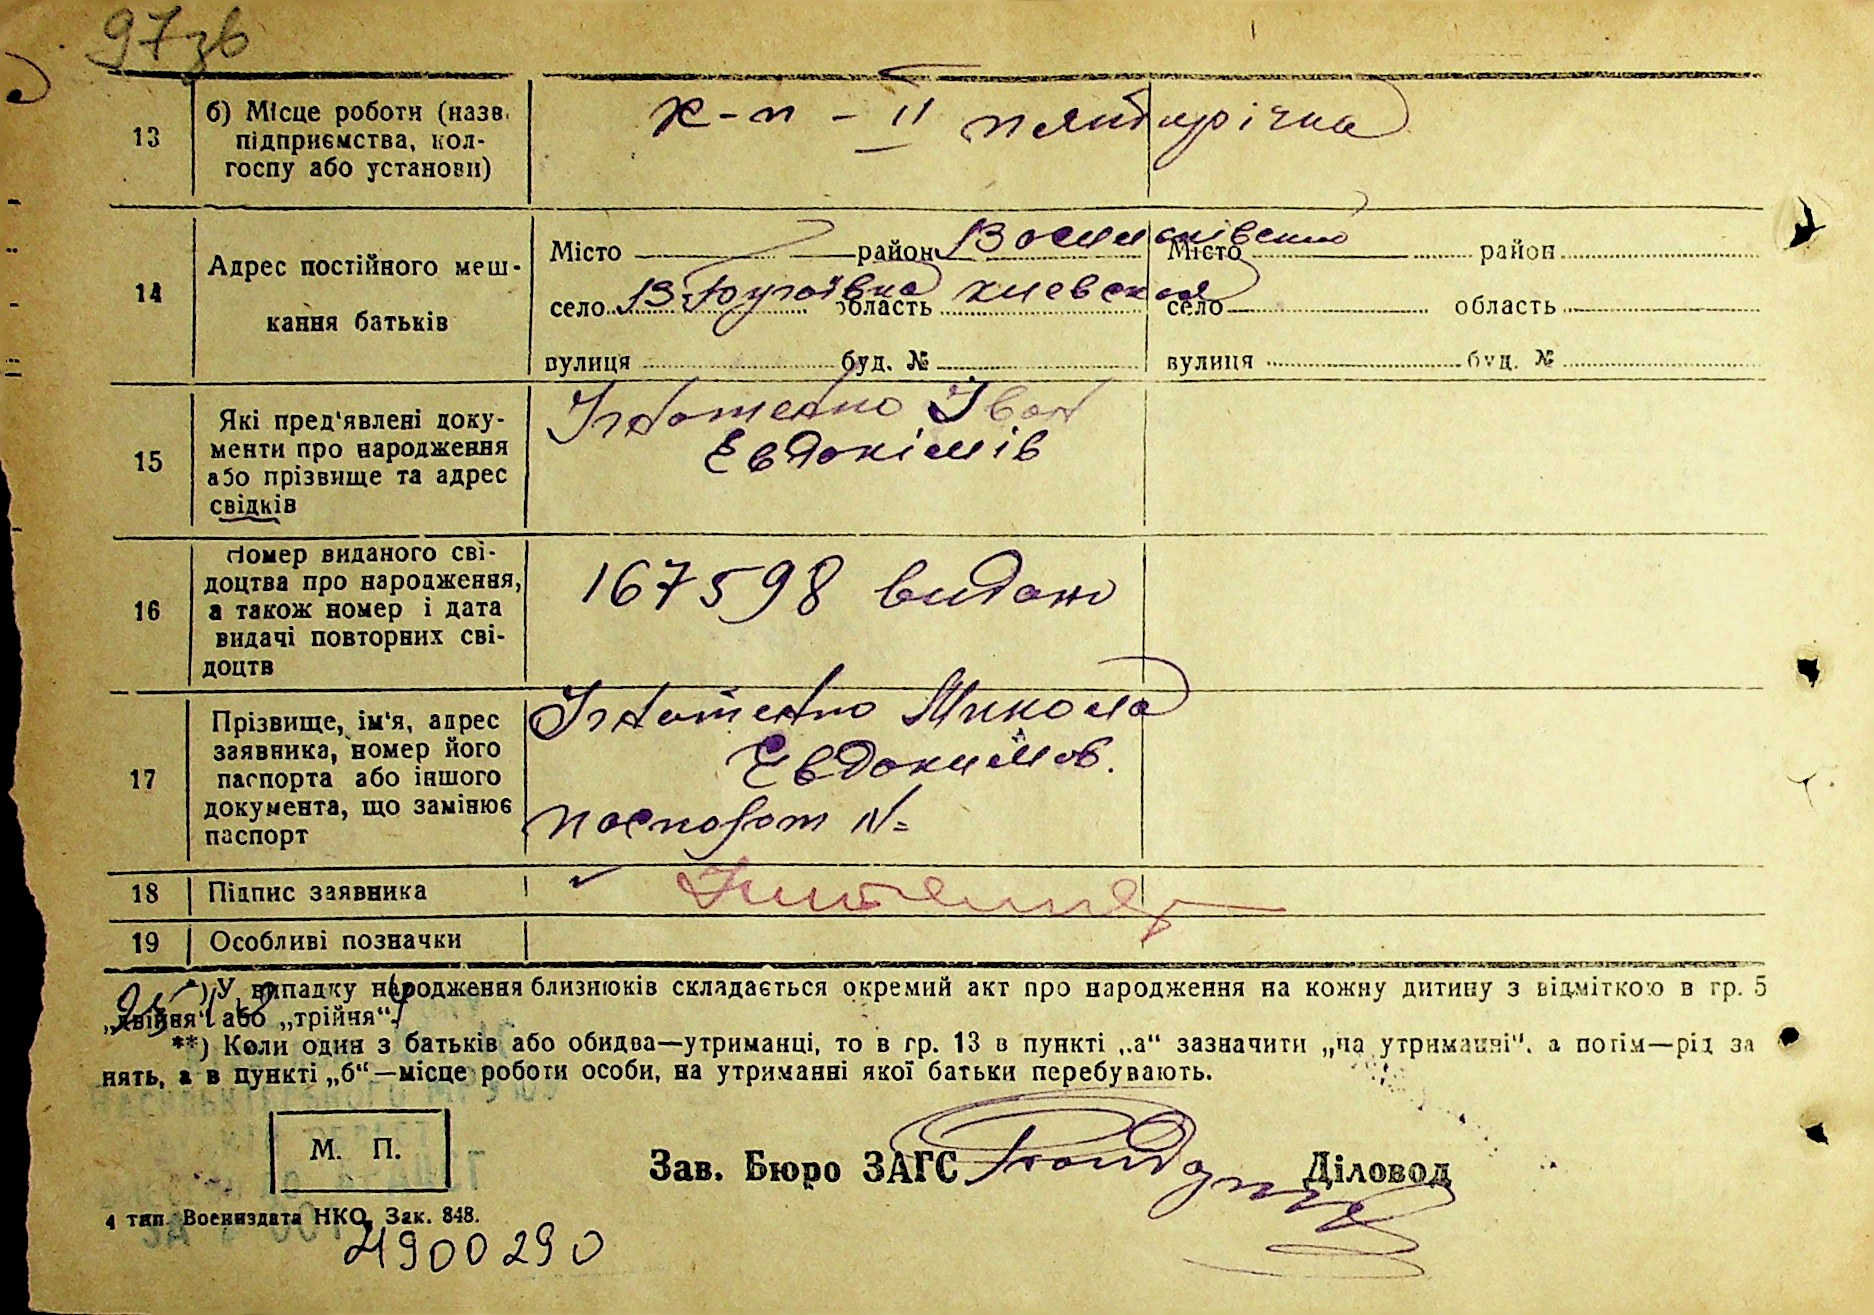 97зв
13
б) Місце роботи (назв. підприємства, кол-
госпу або установи)
к-п - II пятирічка
14
Адрес постійного меш-
кання батьків
Місто район Місто район
село область киевская село область
вулиця буд. № вулиця буд. №
15
Які пред'явлені доку-
менти про народження
або прізвище та адрес
свідків
Іван
Евдокімів
16
Номер виданого сві-
доцтва про народження,
а також номер і дата
видачі повторних сві-
доцтв
167598 видано
17
Прізвище, ім'я, адрес
заявника, номер його
паспорта або іншого
документа, що замінює
паспорт
Микола
Евдокимов.
паспорт №
18 Підпис заявника
19 Особливі позначки
*) У випадку народження близнюків складається окремий акт про народження на кожну дитину з відміткою в гр. 5
„двійня“ або „трійня“.
**) Коли один з батьків або обидва—утриманці, то в гр. 13 в пункті „а“ зазначити „на утриманні“, а потім—рід за
нять, а в пункті „б“—місце роботи особи, на утриманні якої батьки перебувають.
М. П.
Зав. Бюро ЗАГС Діловод
4 тип. Воениздата НКО, Зак. 848.
4900290